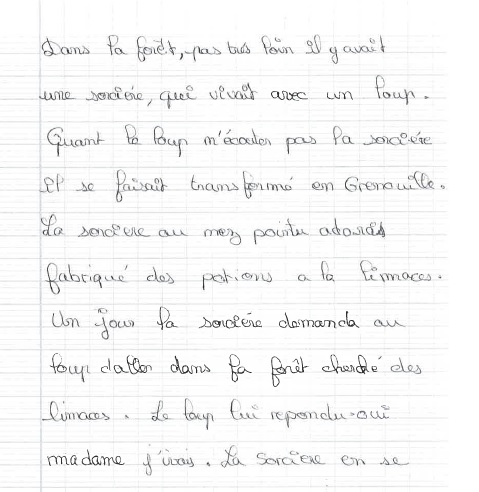 Dans la forêt, pas très loin il y avait
une sorcière, qui vivait avec un loup.
Quant le loup n'écouter pas la sorcière
il se faisait transformé en Grenouille.
La sorcière au nez pointu adorait
fabriqué des potions a la limaces.
Un jour la sorcière demanda au
loup d'aller dans la forêt cherché des
limaces. Le loup lui repondu-oui
madame j'irais. La sorcière en se